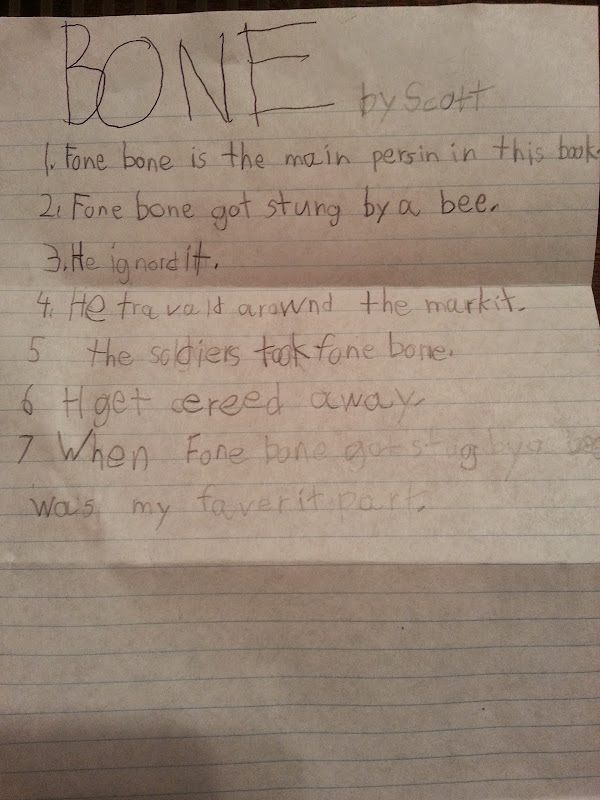 BONE by Scott
1. Fone bone is the main persin in this book.
2. Fone bone got stung by a bee.
3. He ignord it.
4. He travald arownd the markit.
5 the soldiers took fone bone.
6 H get cereed away.
7 When Fone bone got stug by a bee
was my faverit part.